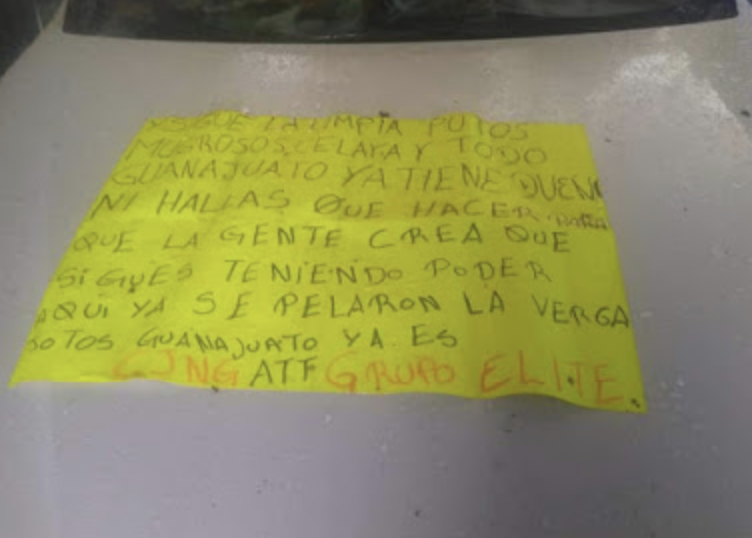 SIGUE LA LIMPIA PUTOS
MUGROSOS, CELAYA Y TODO
GUANAJUATO YA TIENE DUEÑO
NI HALLAS QUE HACER PARA
QUE LA GENTE CREA QUE
SIGUES TENIENDO PODER
AQUI YA SE PELARON LA VERGA
GUANAJUATO YA ES
CJNG ATF GRUPO ELITE.